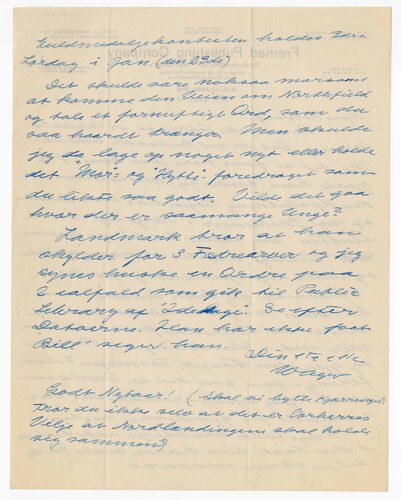 Guldmedaljekontesten holdes 3die
Lördag i Jan. (den 23de)
Det skulde være noksaa morsomt
at komme den Veien om Northfield
og tale et fornuftigt Ord, som du
saa haardt trænger. Men skulde
jeg da lage op noget nyt eller holde
det "Mor" og "Hytte" foredraget som
du likte saa godt. Vilde det gaa
hvor der er saamange Unge?
Landmark tror at han
skylder for 3 Februarer og jeg
synes huske en Ordre paa
2 ialfald som gik til Public
Library af "
Se efter
Datoerne. Han har ikke faat
"Bill" siger han.
Din
Wager
Godt Nytaar! (Skal vi bytte Kjærringer?
Tror du ikke selv at det er Vorherres
Vilje at Nordlandingene skal holde
sig sammen?)
Fremad Publishing Company